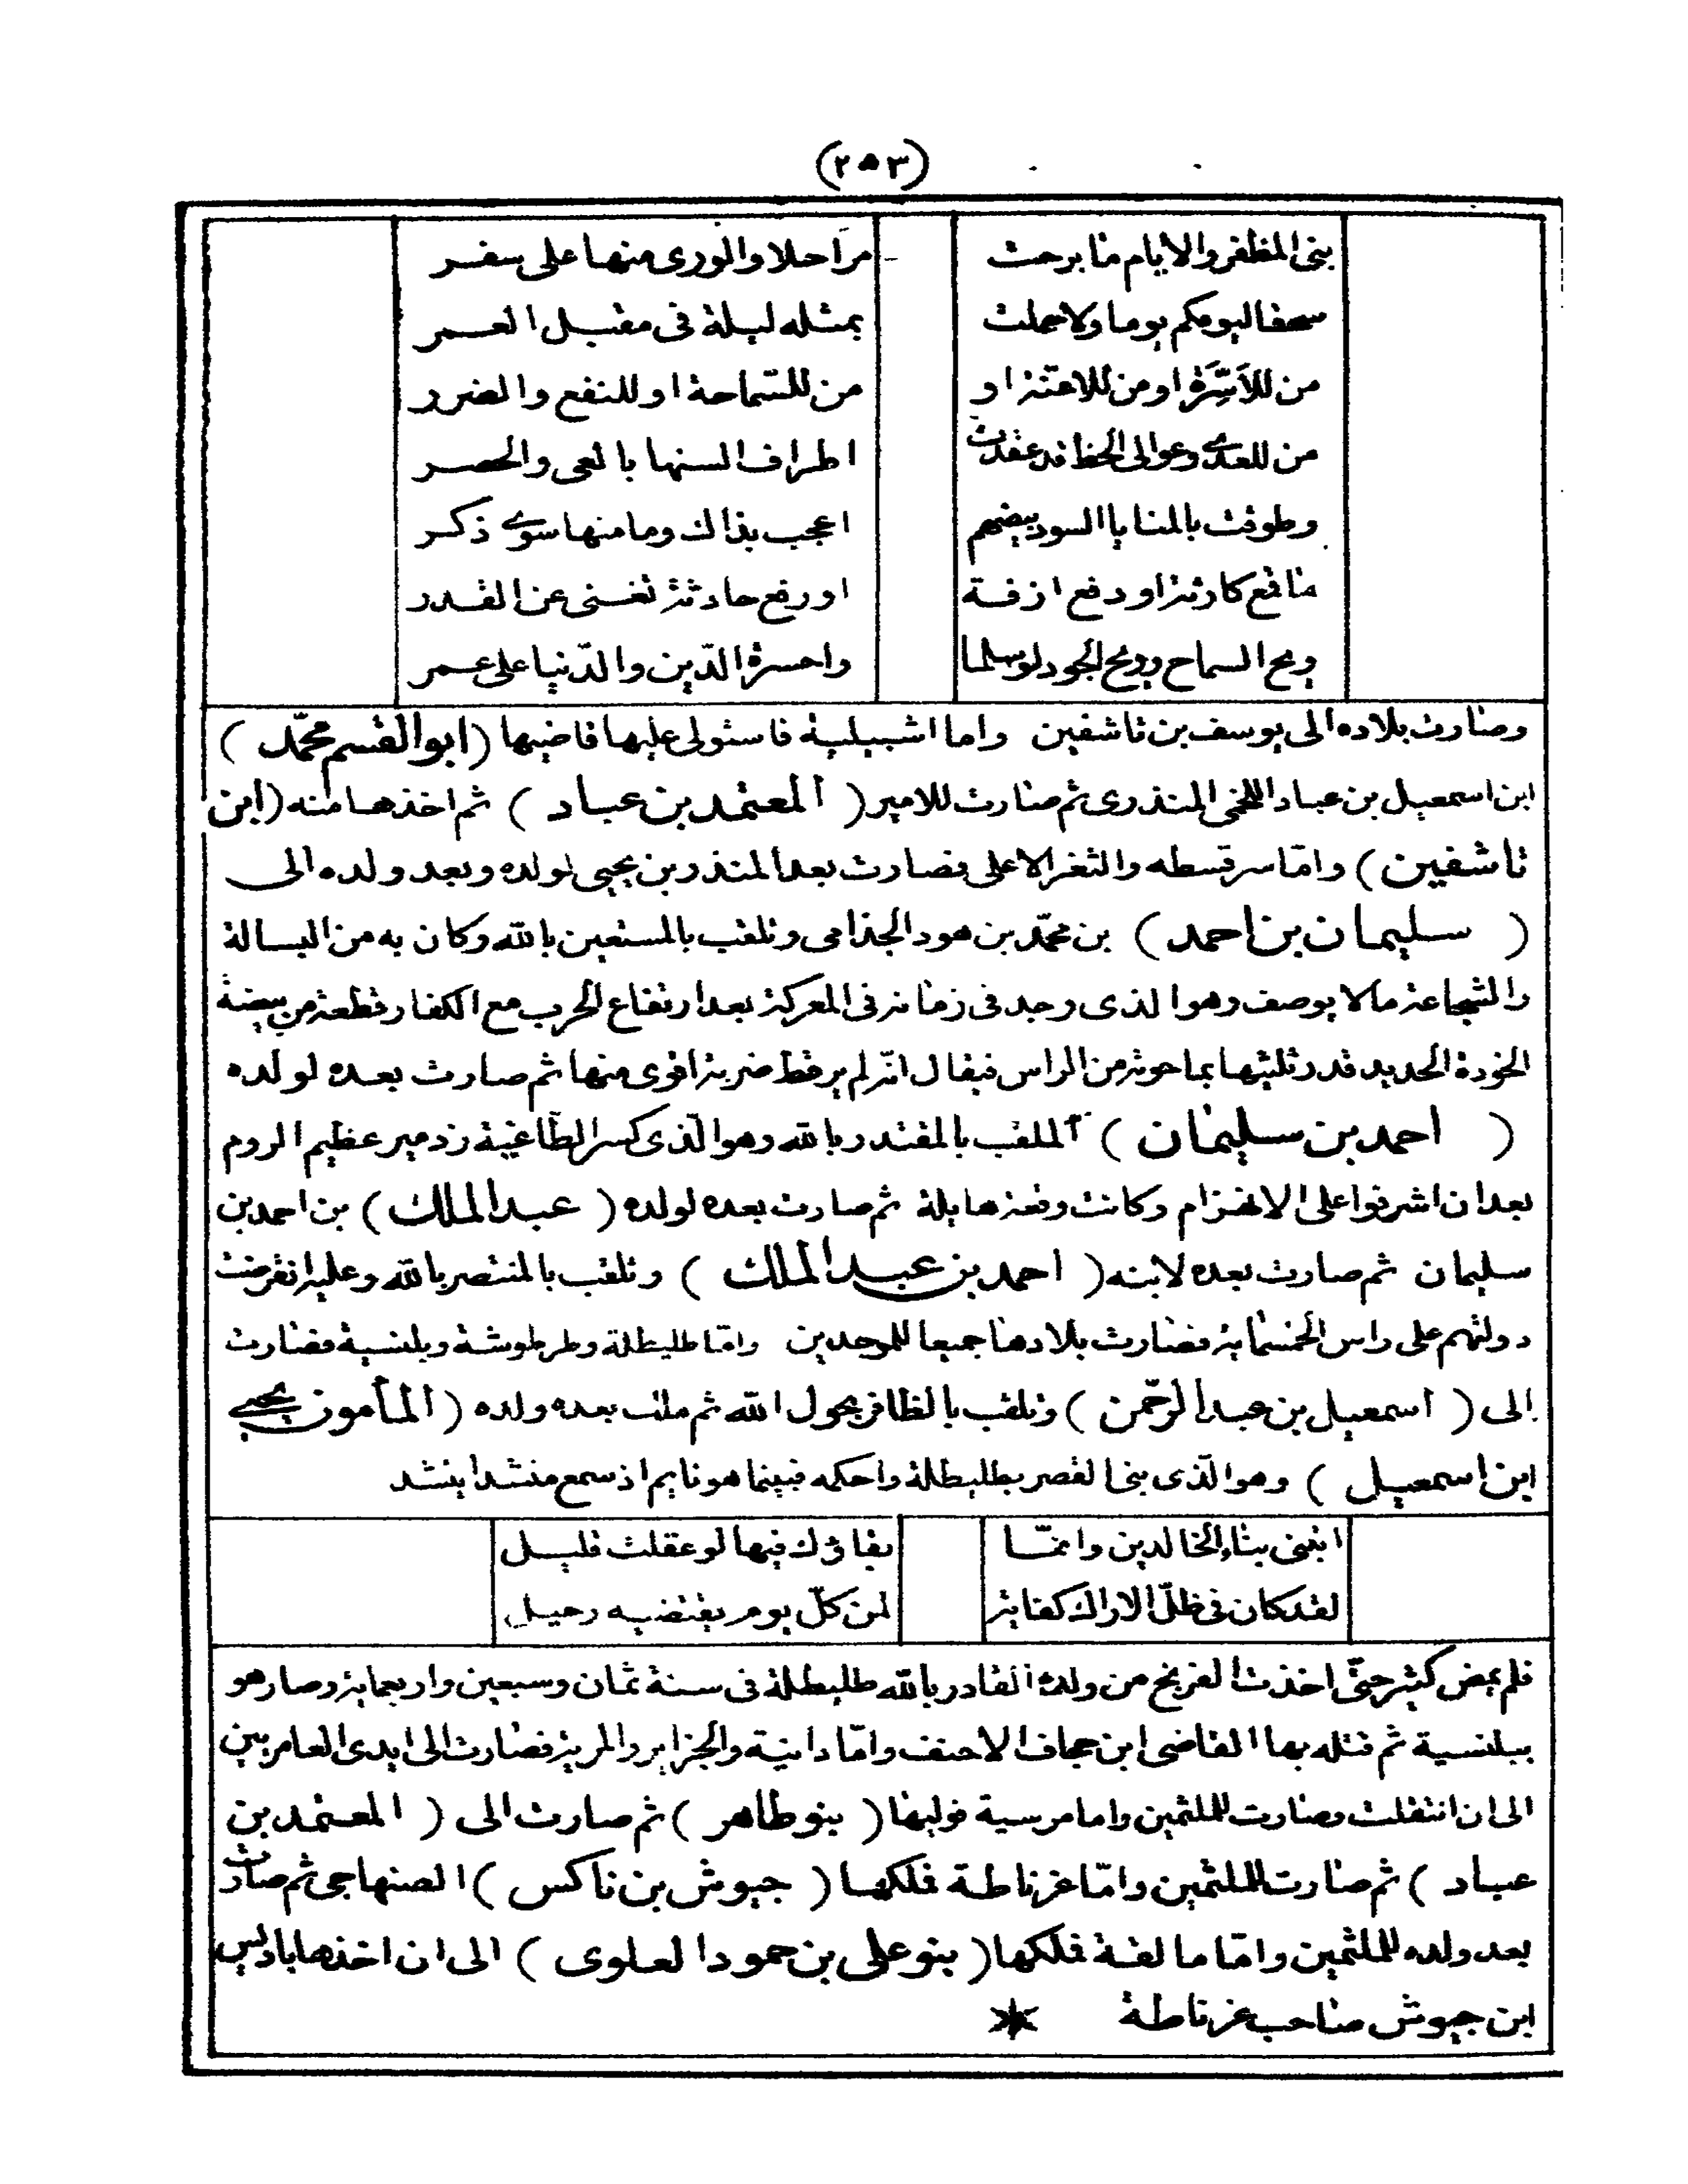 (٢٥٣)
بنى المظفر والايام ما برحت مراحلا والورى منها على سفر
سحقا ليومكم يوما ولا حملت بمثله ليلة فى مقبل العمر
من للاسّرة او من للاعنة او من للسّماحة او للنفع والضرر
من للعدى وعوالى الخط قد عقدت اطراف السنها بالعى والحصر
وطوقت بالمنايا السود بيضهم اعجب بذاك وما منها سوى ذكر
او دفع ازفة او رفع حادثة تغنى عن القدر
ويح السماح وويح الجود لو سلما واحسرة الدّين والدّنيا على عمر
وصارت بلاده الى يوسف بن تاشفين واما اشبيلية فاستولى عليها قاضيها (ابو القسم محمّد)
ابن اسمعيل بن عباد اللخمى المنذرى ثم صارت للامير (المعتمد بن عباد) ثم اخذها منه (ابن
تاشفين) وامّا سرقسطه والثغر الاعلى فصارت بعد المنذر بن يحيى لولده وبعد ولده الى
(سليمان بن احمد) بن محمّد بن هود الجذامى وتلقب بالمستعين بالله وكان به من البسالة
والشجاعة مالا يوصف وهو الذى وجد فى زمانه فى المعركة بعد ارتفاع الحرب مع الكفار قطعة من بيضة
الخوذة الحديد قدر ثلثيها بما حوته من الراس فيقال انّه لم ير قط ضربة اقوى منها ثم صارت بعده لولده
(احمد بن سليمان) الملقب بالمقتدر بالله وهو الّذى كسر الطّاغية زدمير عظيم الروم
بعد ان اشرفوا على الانهزام وكانت وقعة هايلة ثم صارت بعده لولده (عبد الملك) بن احمد بن
سليمان ثم صارت بعده لابنه (احمد بن عبد الملك) وتلقب بالمنتصر بالله وعليه انقرضت
دولتهم على راس الخمسماية فصارت بلادها جميعا للموحدين وامّا طليطلة وطرطوشة وبلنسية فصارت
الى (اسمعيل بن عبد الرحّمن) وتلقب بالظافر بحول الله ثم ملك بعده ولده (المأمون يحيى
ابن اسمعيل) وهو الّذى بنى القصر بطليطلة واحكمه فبينما هو نايم اذ سمع منشدا ينشد
اتبنى بناء الخالدين وانمّا بقاؤك فيها لو عقلت قليل
لقد كان فى ظلّ الاراك كفاية لمن كلّ يوم يقتضيه رحيل
فلم يمض كثير حتّى اخذت الفرنج من ولده القادر بالله طليطلة فى سنة ثمان وسبعين واربعماية وصار هو
ببلنسية ثم قتله بها القاضى ابن جحاف الاحنف وامّا دانية والجزاير والمرية فصارت الى ايدى العامريين
الى ان انتقلت وصارت للملثمين واما مرسية فوليها (بنو طاهر) ثم صارت الى (المعتمد بن
عباد) ثم صارت للملثمين وامّا غرناطة فملكها (جيوش بن ناكس) الصنهاجى ثم صارت
بعد ولده للملثمين وامّا مالقة فملكها (بنو على بن حمود العلوى) الى ان اخذها باديس
ابن جيوش صاحب غرناطة *